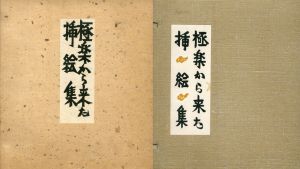 極楽から来た
挿絵集
極楽から来た
挿絵集